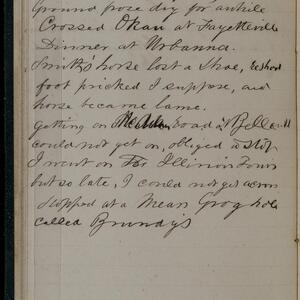 Ground froze dry for awhile
Crossed Okau at Fayetteville
Dinner at Urbanna.
Smith's horse lost a Shoe,
foot pricked I suppose, and
horse became lame.
getting on road at
could not get on, obliged to stop
I went on For Illinois Town
but so late, I could not get across
Stopped at a Mean Grog hole
called Brundy's